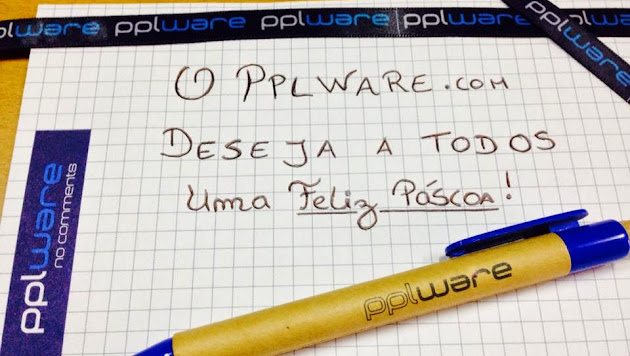 pplware pplware pplware pplware pplware
pplware
O PPLWARE.COM
DESEJA A TODOS
Uma Feliz Páscoa!
pplware
no comments
pplware